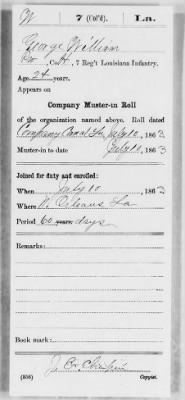 W 7 (Col'd). La.
George William
Co. H, 7 Reg't Louisiana Infantry.
Age 24 years.
Appears on
Company Muster-in Roll
of the organization named above. Roll dated
Company Canal La, July 10, 1863
Muster-in to date July 10, 1863
Joined for duty and enrolled:
When July 10, 1863
Where N. Orleans La
Period 60 years. days
Remarks:
Book mark:
(356) Copyist.